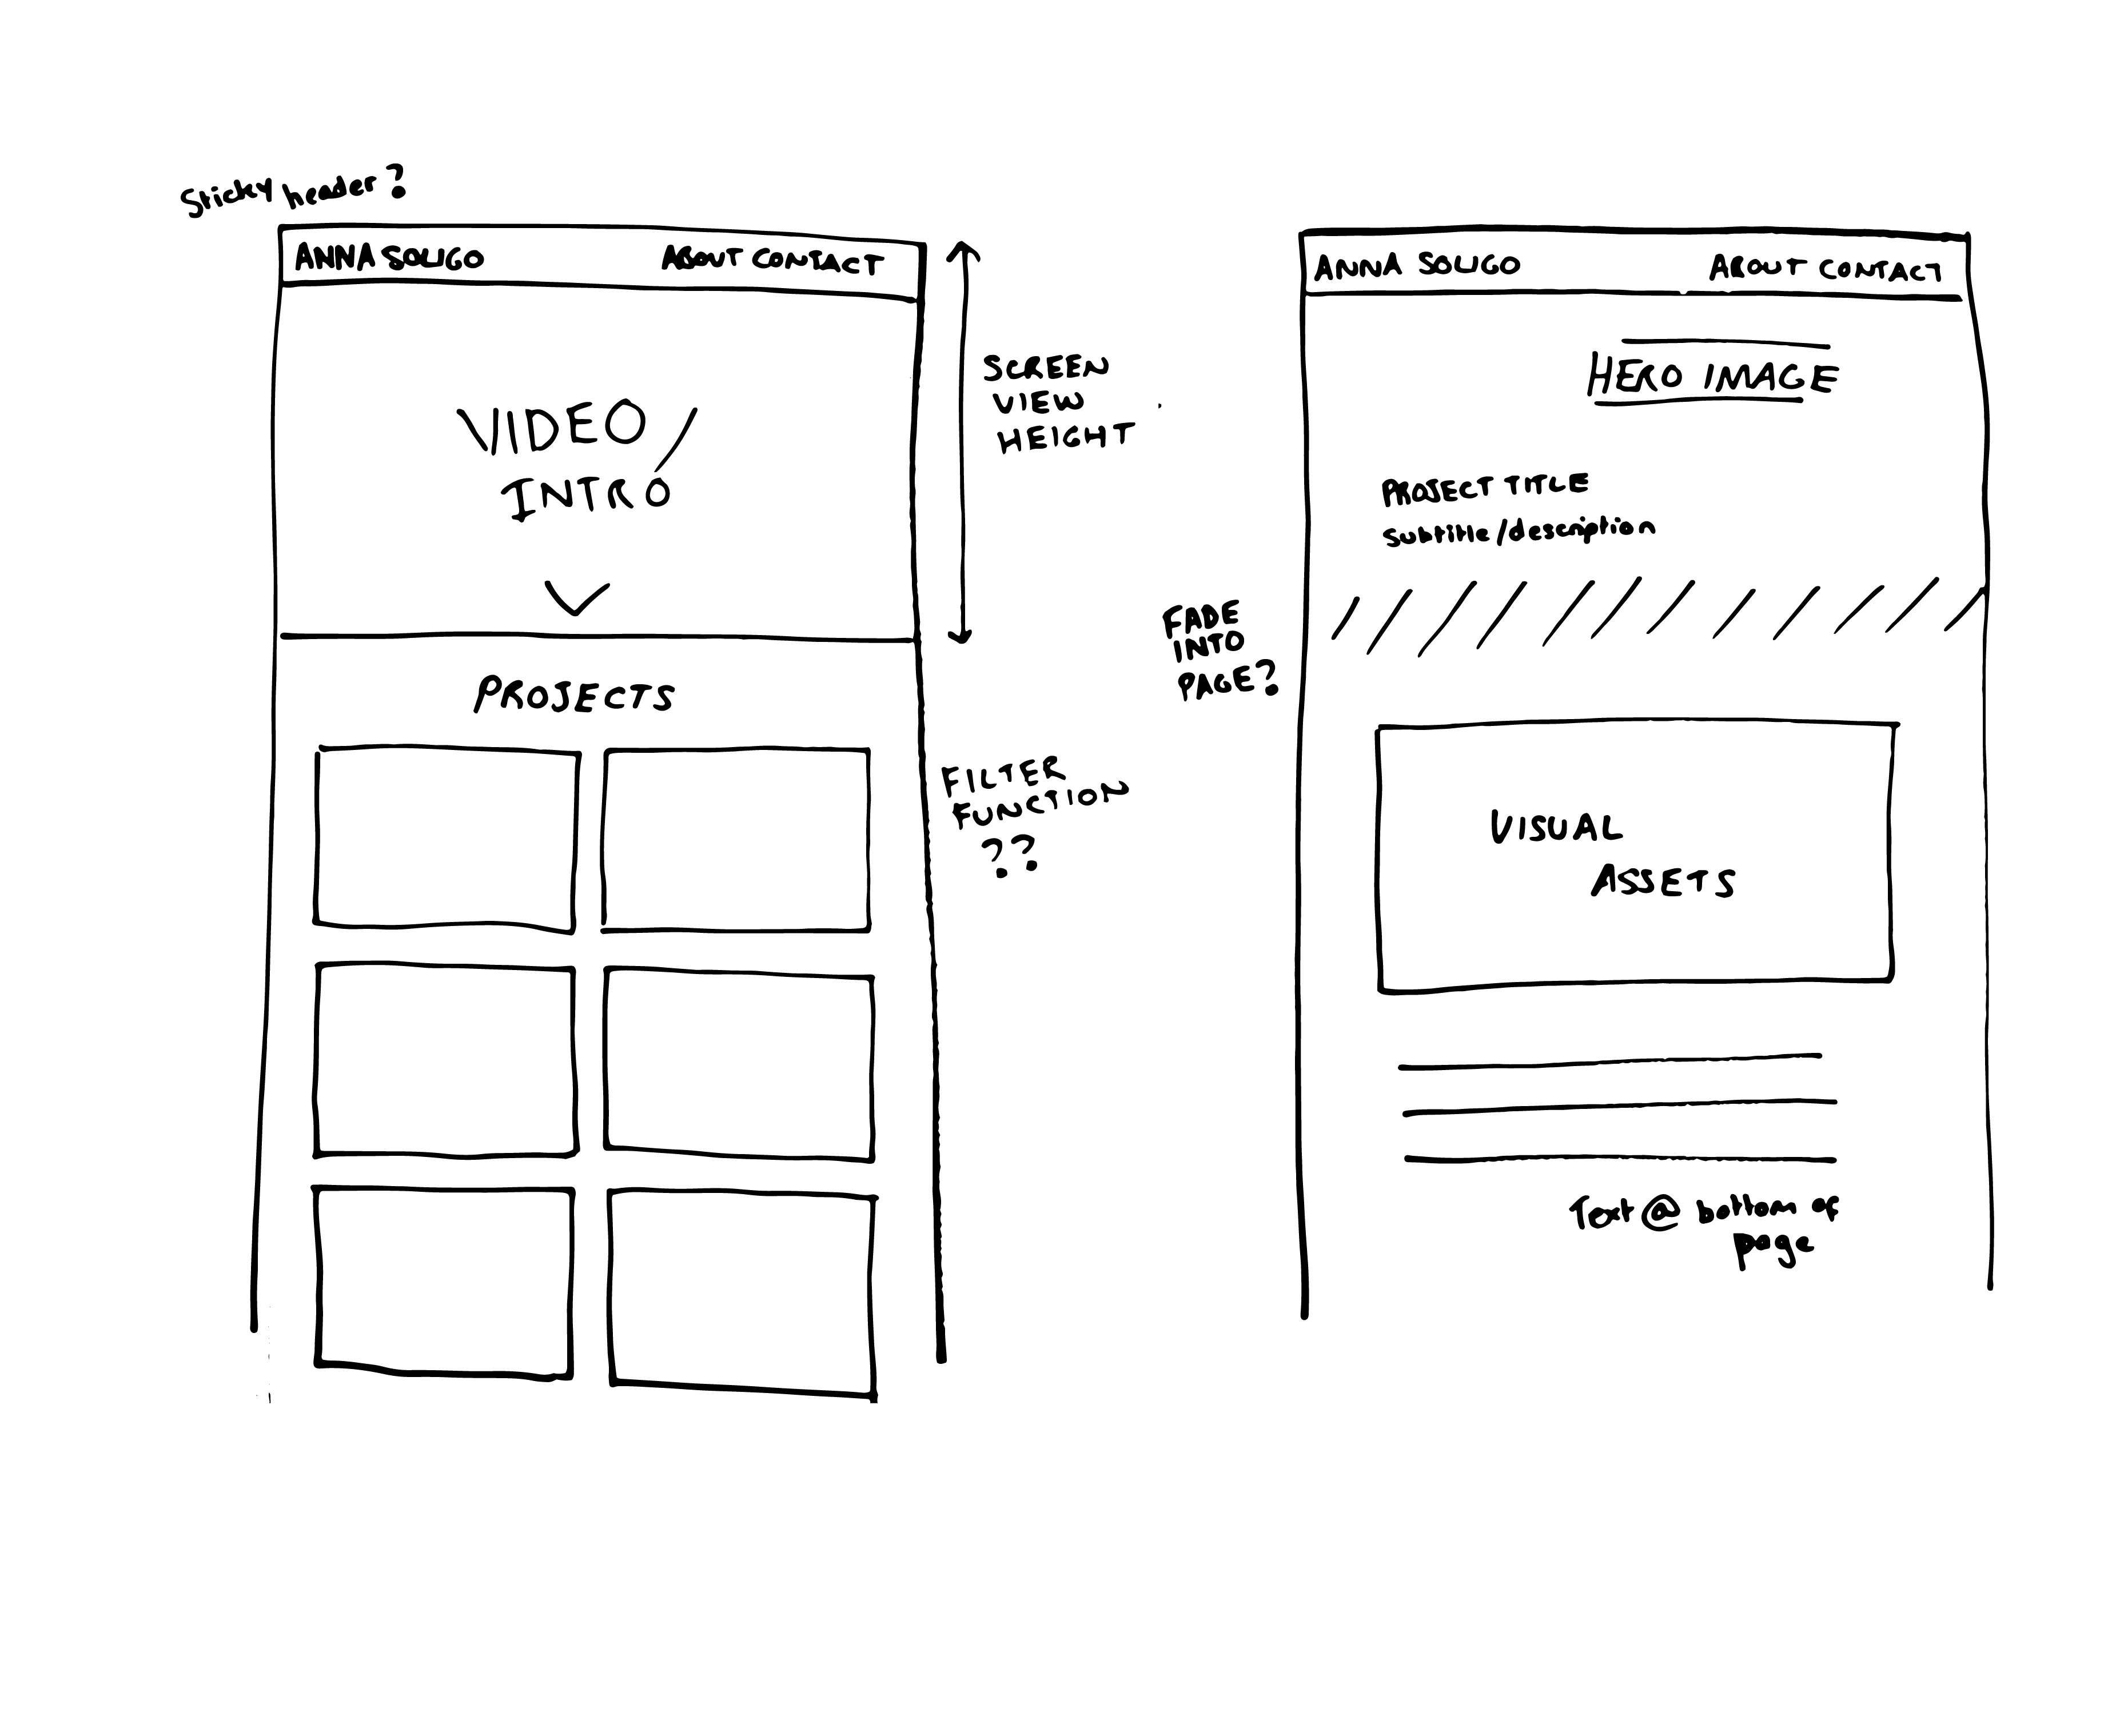 Sticky header?
ANNA SOLIGO
ABOUT CONTACT
VIDEO/
INTRO
SCREEN
VIEW
HEIGHT
PROJECTS
FILTER
FUNCTION
??
ANNA SOLIGO
ABOUT CONTACT
HERO IMAGE
PROJECT TITLE
subtitle/description
FADE
INTO
PAGE?
VISUAL
ASSETS
Text @ bottom of
page